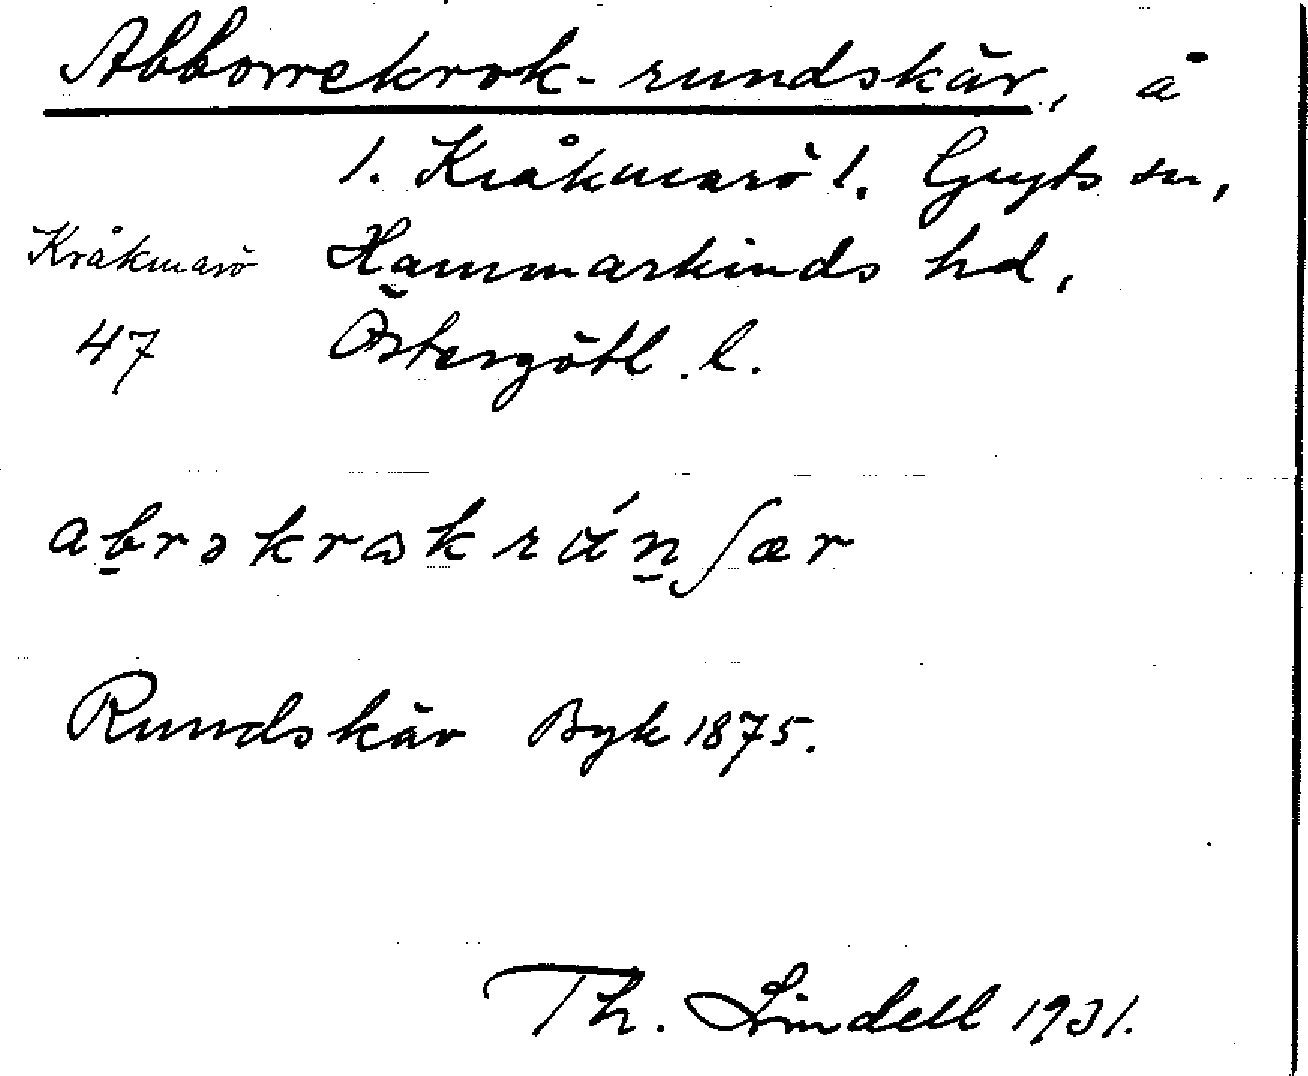 Abborrekrok-rundskär, å
1. Kråkmarö 1. Gryts sn,
Kråkmarö Hammarkinds hd,
47 Östergötl. l.
abrəkrɷkrɯ́nʃær
Rundskär Byk 1875.
Th. Lindell 1931.